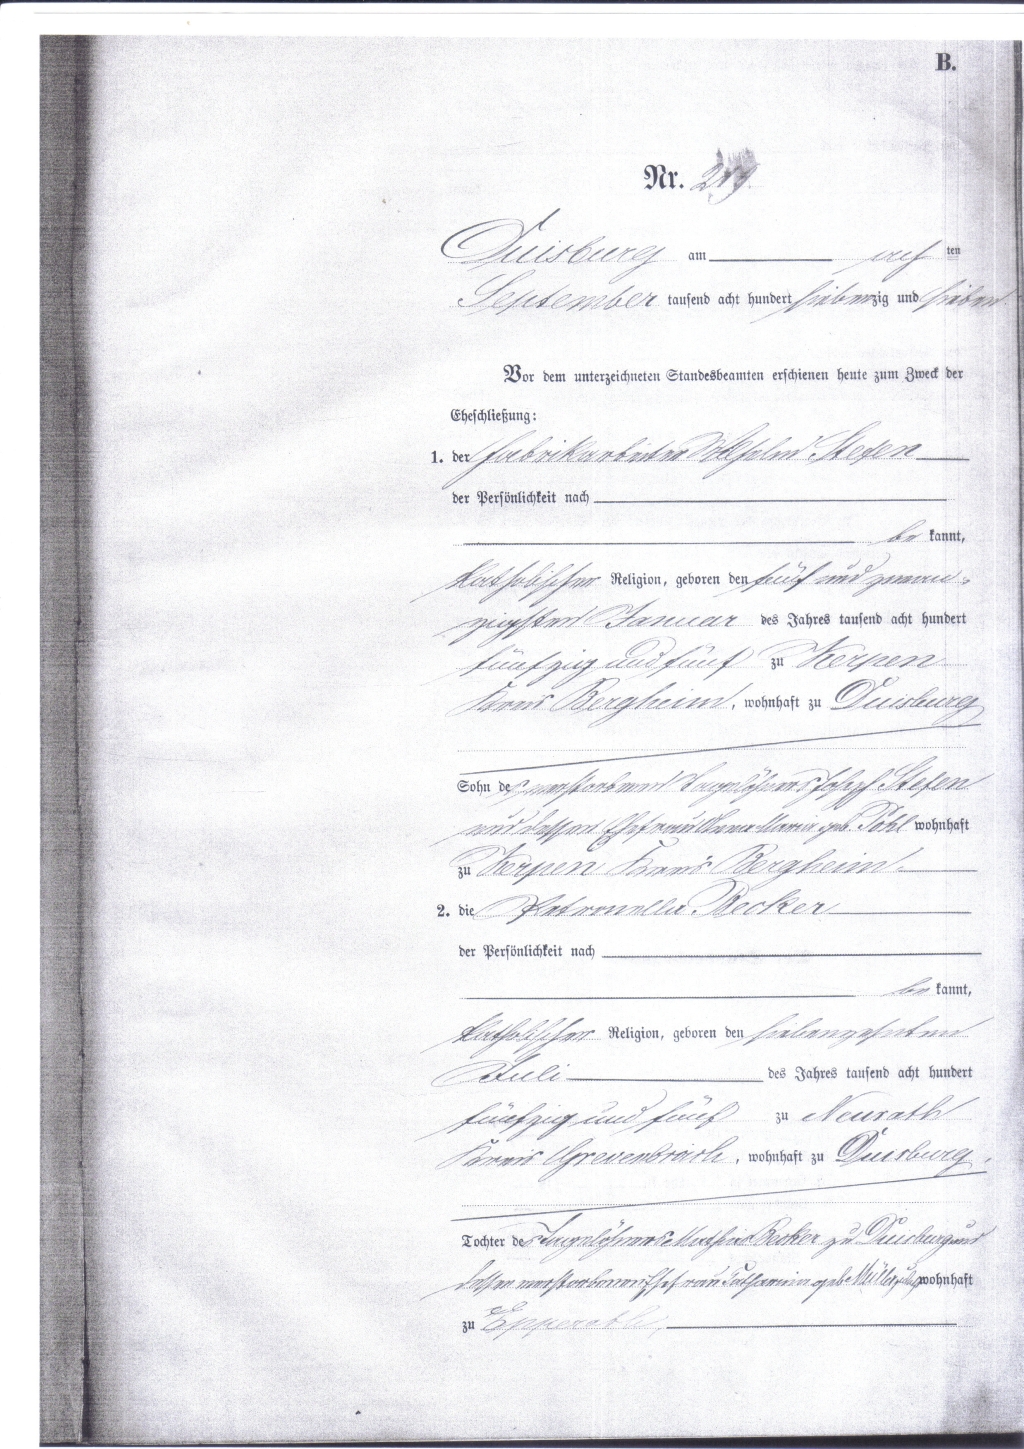 B.
Nr. 219.
Duisburg am acht ten
September tausend acht hundert siebenzig und sieben
Vor dem unterzeichneten Standesbeamten erschienen heute zum Zweck der
Eheschließung:
1. der Fabrikarbeiter Wilhelm Stefen
der Persönlichkeit nach
be kannt,
katholischer Religion, geboren den fünf und zwan-
zigsten Januar des Jahres tausend acht hundert
fünfzig und fünf zu Kerpen
Kreis Bergheim, wohnhaft zu Duisburg
Sohn des verstorbenen Tagelöhners Joseph Stefen
und dessen Ehefrau Anna Maria geb. Pohl wohnhaft
zu Kerpen Kreis Bergheim
2. die Petronella Becker
der Persönlichkeit nach
be kannt,
katholischer Religion, geboren den siebenzehnten
Juli des Jahres tausend acht hundert
fünfzig und fünf zu Neurath
Kreis Grevenbroich, wohnhaft zu Duisburg,
Tochter des Tagelöhners Mathias Becker zu Duisburg und
dessen verstorbenen Ehefrau Catharina geb. Müller, wohnhaft
zu Epperath,